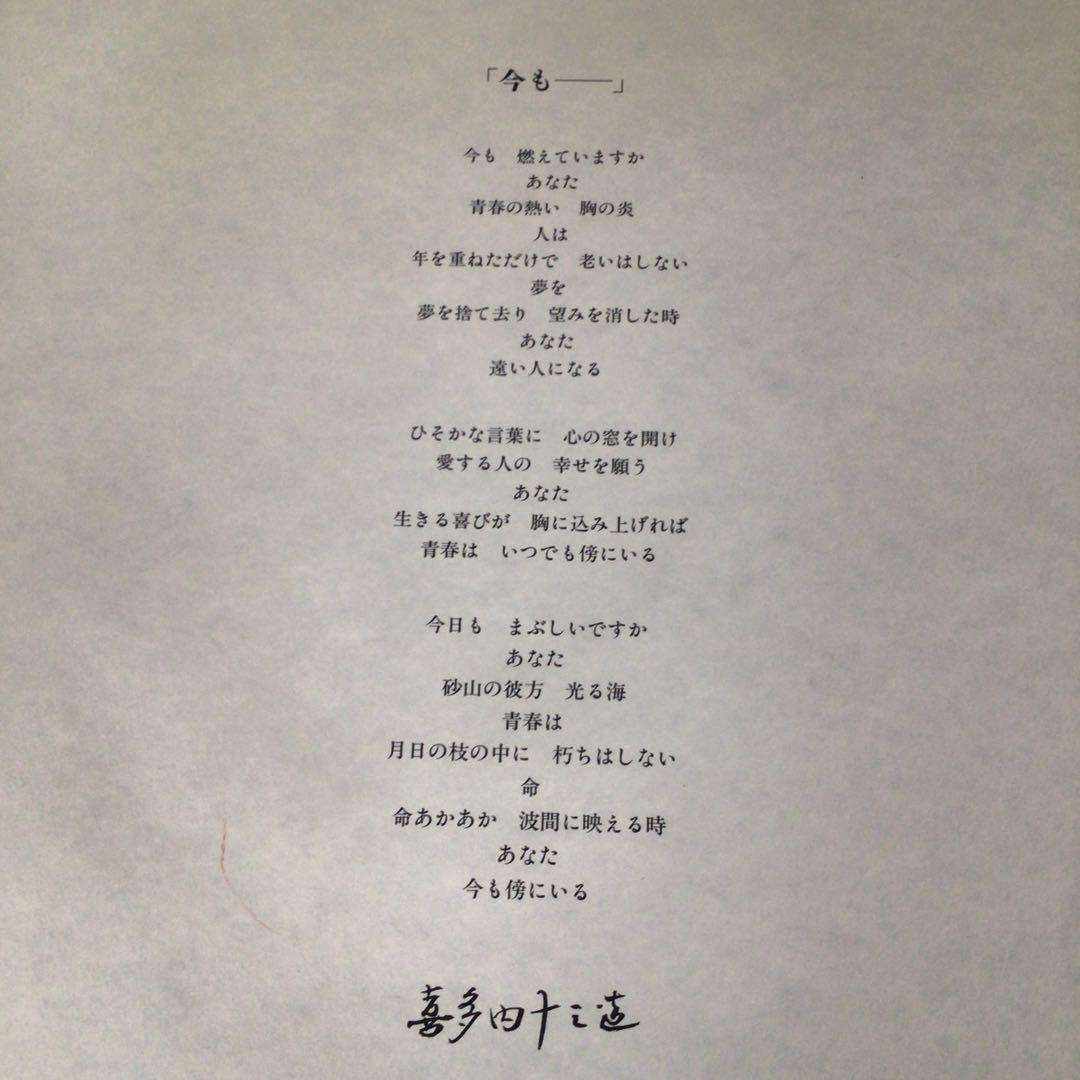 「今も――」
今も　燃えていますか
あなた
青春の熱い　胸の炎
人は
年を重ねただけで　老いはしない
夢を
夢を捨て去り　望みを消した時
あなた
遠い人になる
ひそかな言葉に　心の窓を開け
愛する人の　幸せを願う
あなた
生きる喜びが　胸に込み上げれば
青春は　いつでも傍にいる
今日も　まぶしいですか
あなた
砂山の彼方　光る海
青春は
月日の枝の中に　朽ちはしない
命
命あかあか　波間に映える時
あなた
今も傍にいる
喜多内十三造